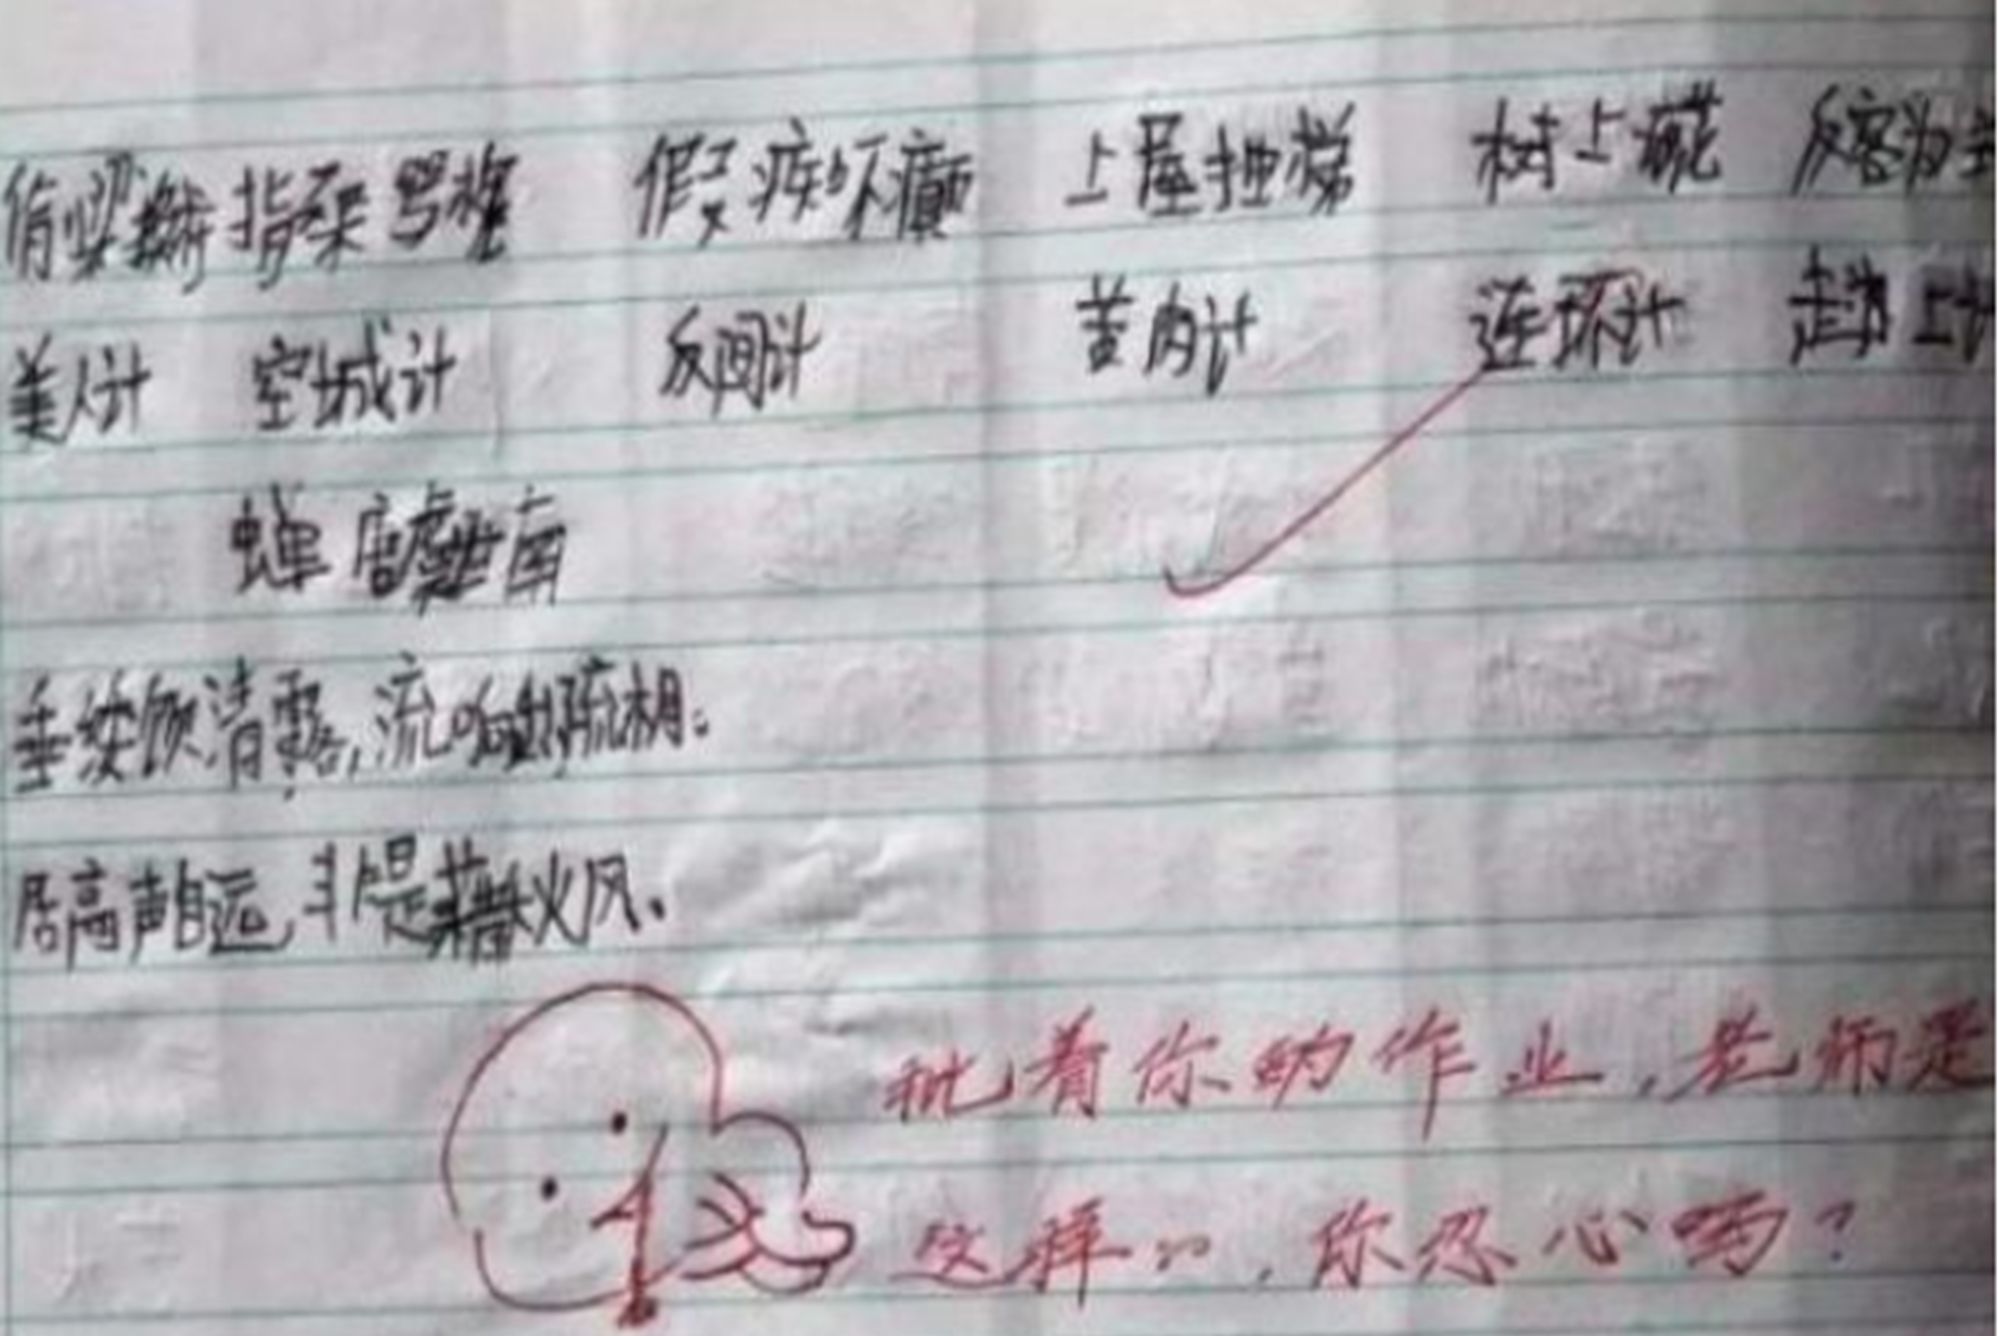 偷梁换柱 指桑骂槐 假痴不癫 上屋抽梯 树上开花 反客为主
美人计 空城计 反间计 苦肉计 连环计 走为上计
蝉 唐虞世南
垂緌饮清露,流响出疏桐。
居高声自远,非是藉秋风。
批着你的作业,老师是
这样的,你忍心吗?